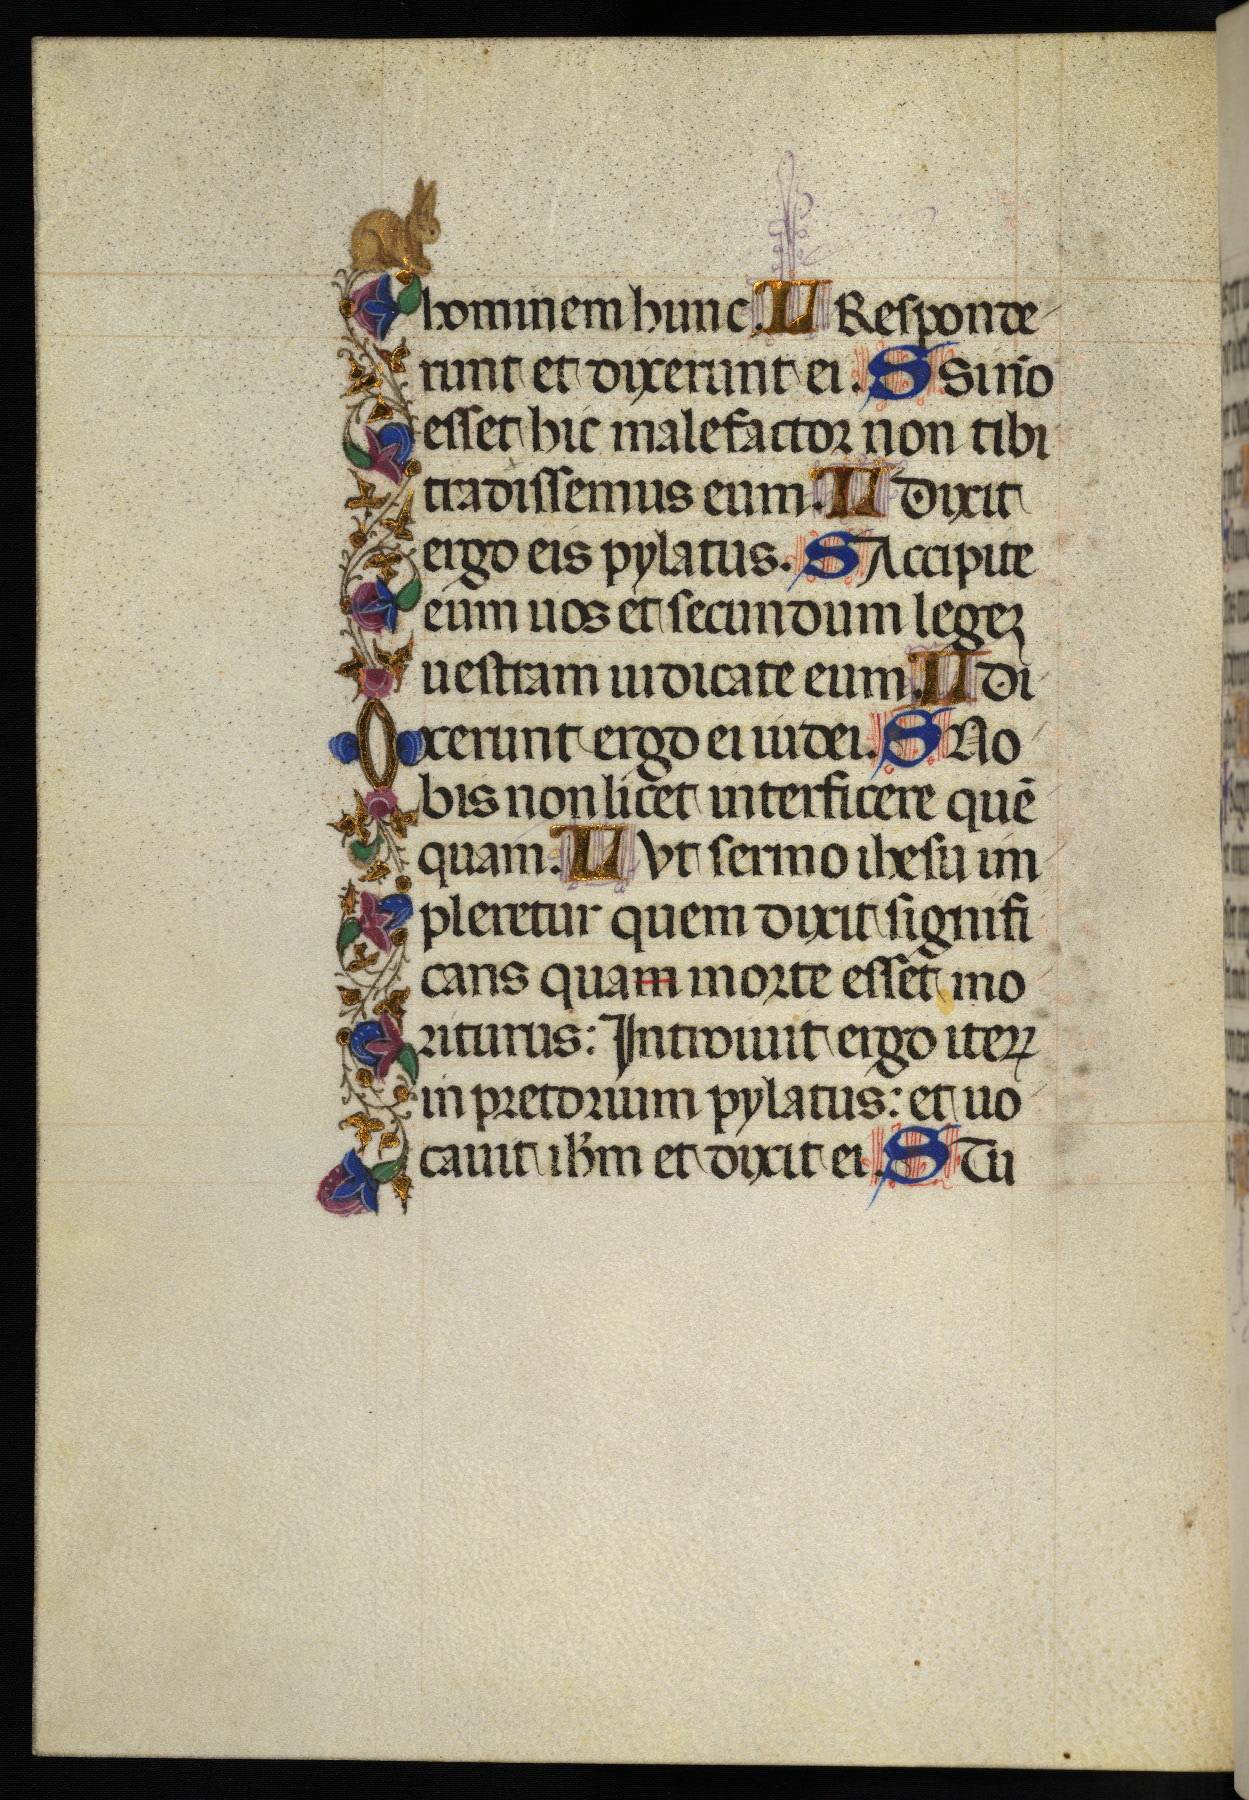 hominem hunc. L Responde
runt et dixerunt ei. S Si nō
esset hic malefactor non tibi
tradissemus eum. L Dixit
ergo eis pylatus. S Accipite
eum uos et secundum legeʒ
uestram iudicate eum. L Di
xerunt ergo ei iudei. S No
bis non licet interficere quē
quam. L Vt sermo ihesu im
pleretur quem dixit signifi
cans quam morte esset mo
riturus: Introiuit ergo iteꝝ
in pretorium pylatus: et uo
cauit ihm̄ et dixit ei. S Tu